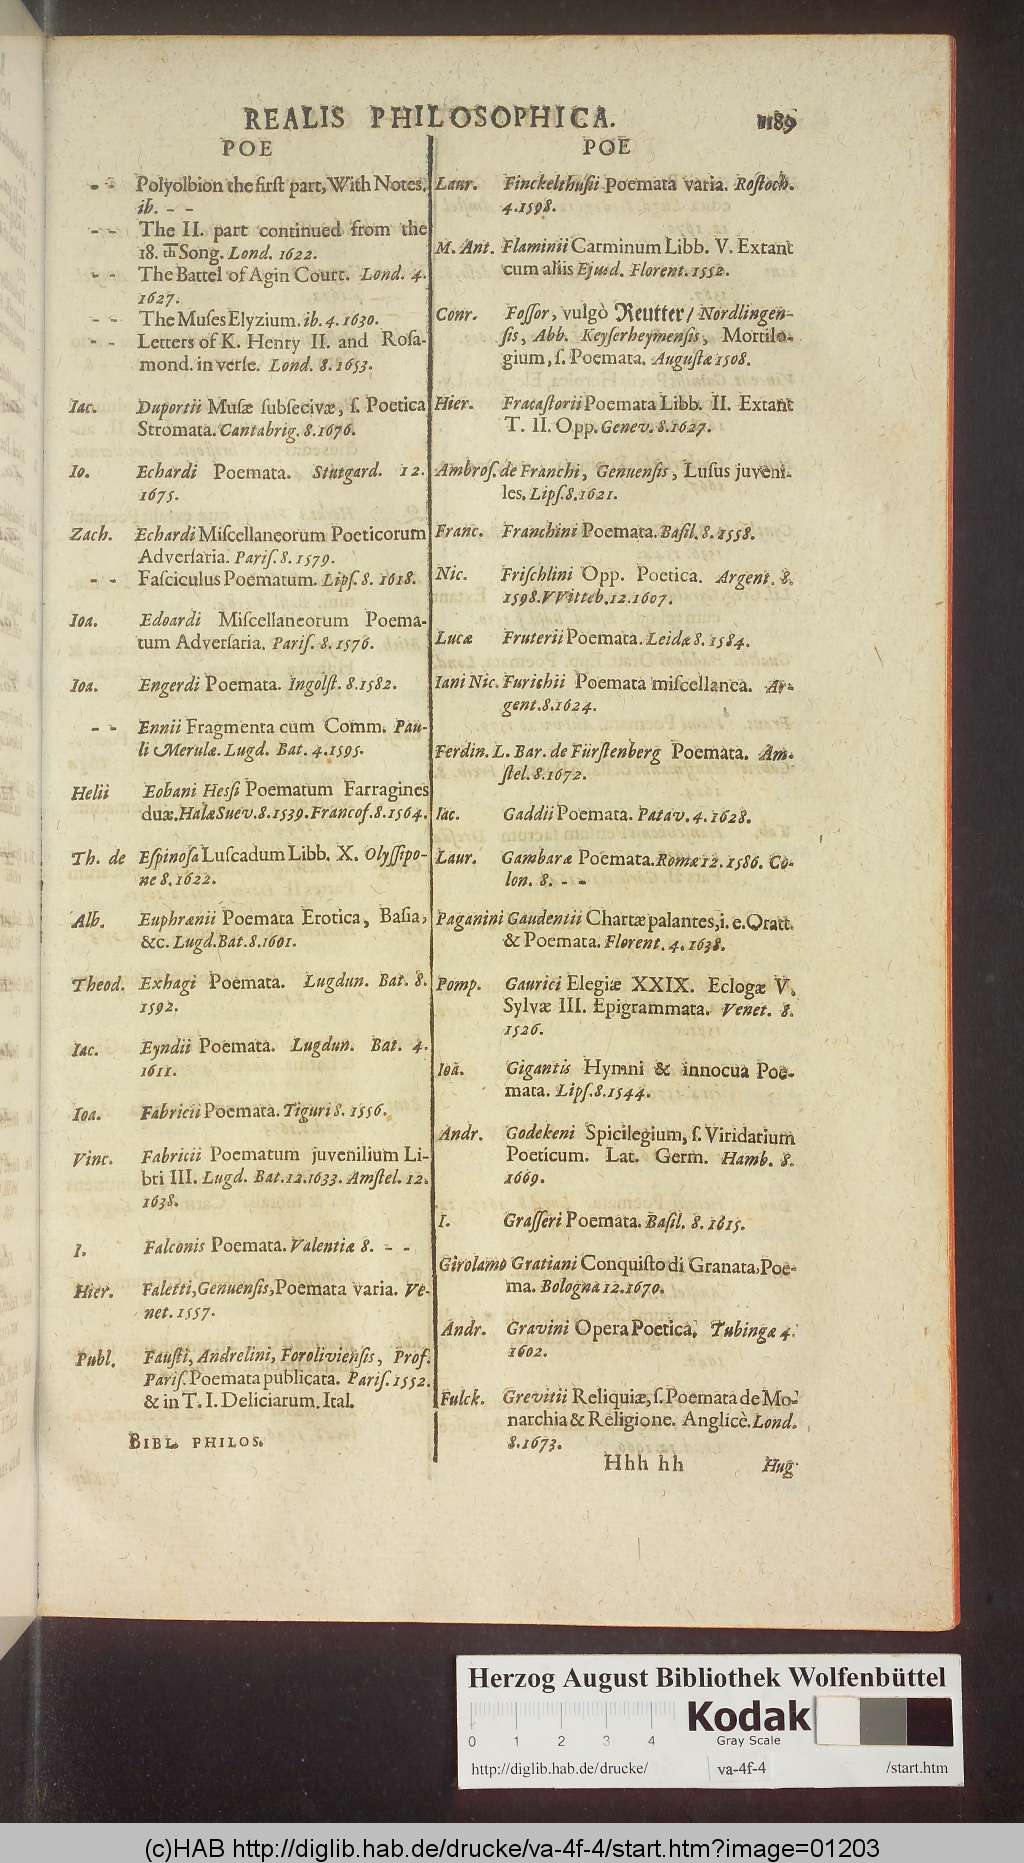 REALIS PHILOSOPHICA. 1189
POE
- - Polyolbion the first part, With Notes.
ib. - -
- - The II. part continued from the
18. th Song. Lond. 1622.
- - The Battel of Agin Court. Lond. 4.
1627.
- - The Muses Elyzium. ib. 4. 1630.
- - Letters of K. Henry II. and Rosa-
mond. in verse. Lond. 8. 1653.
Iac. Duportii Musæ subsecivæ, s. Poetica
Stromata. Cantabrig. 8. 1676.
Io. Echardi Poemata. Stutgard. 12.
1675.
Zach. Echardi Miscellaneorum Poeticorum
Adversaria. Paris. 8. 1579.
- - Fasciculus Poematum. Lips. 8. 1618.
Ioa. Edoardi Miscellaneorum Poema-
tum Adversaria. Paris. 8. 1576.
Ioa. Engerdi Poemata. Ingolst. 8. 1582.
- - Ennii Fragmenta cum Comm. Pau-
li Merulæ. Lugd. Bat. 4. 1595.
Helii Eobani Hessi Poematum Farragines
duæ. Halæ Suev. 8. 1539. Francof. 8. 1564.
Th. de Espinosa Luscadum Libb. X. Olyssipo-
ne 8. 1622.
Alb. Euphrænii Poemata Erotica, Basia,
&c. Lugd. Bat. 8. 1601.
Theod. Exhagi Poemata. Lugdun. Bat. 8.
1592.
Iac. Eyndii Poemata. Lugdun. Bat. 4.
1611.
Ioa. Fabricii Poemata. Tiguri 8. 1556.
Vinc. Fabricii Poematum juvenilium Li-
bri III. Lugd. Bat. 12. 1633. Amstel. 12.
1638.
I. Falconis Poemata. Valentiæ 8. - -
Hier. Faletti, Genuensis, Poemata varia. Ve-
net. 1557.
Publ. Fausti, Andrelini, Foroliviensis, Prof.
Paris. Poemata publicata. Paris. 1552.
& in T. I. Deliciarum. Ital.
BIBL. PHILOS.
POE
Laur. Finckelthusii Poemata varia. Rostoch.
4. 1598.
M. Ant. Flaminii Carminum Libb. V. Extant
cum aliis Ejusd. Florent. 1552.
Conr. Fossor, vulgò Reutter / Nordlingen-
sis, Abb. Keyserheymensis, Mortilo-
gium, s. Poemata. Augustæ 1508.
Hier. Fracastorii Poemata Libb. II. Extant
T. II. Opp. Genev. 8. 1627.
Ambros. de Franchi, Genuensis, Lusus juveni-
les. Lips. 8. 1621.
Franc. Franchini Poemata. Basil. 8. 1558.
Nic. Frischlini Opp. Poetica. Argent. 8.
1598. VVitteb. 12. 1607.
Lucæ Fruterii Poemata. Leidæ 8. 1584.
Iani Nic. Furichii Poemata miscellanea. Ar-
gent. 8. 1624.
Ferdin. L. Bar. de Fürstenberg Poemata. Am-
stel. 8. 1672.
Iac. Gaddii Poemata. Patav. 4. 1628.
Laur. Gambaræ Poemata. Romæ 12. 1586. Co-
lon. 8. - -
Paganini Gaudentii Chartæ palantes, i. e. Oratt.
& Poemata. Florent. 4. 1638.
Pomp. Gaurici Elegiæ XXIX. Eclogæ V.
Sylvæ III. Epigrammata. Venet. 8.
1526.
Ioa. Gigantis Hymni & innocua Poe-
mata. Lips. 8. 1544.
Andr. Godekeni Spicilegium, s. Viridarium
Poeticum. Lat. Germ. Hamb. 8.
1669.
I. Grasseri Poemata. Basil. 8. 1615.
Girolamo Gratiani Conquisto di Granata, Poe-
ma. Bologna 12. 1670.
Andr. Gravini Opera Poetica. Tubingæ 4.
1602.
Fulck. Grevitii Reliquiæ, s. Poemata de Mo-
narchia & Religione. Anglicè. Lond.
8. 1673.
Hhh hh Hug
Herzog August Bibliothek Wolfenbüttel
0 1 2 3 4
Kodak
Gray Scale
http://diglib.hab.de/drucke/ va-4f-4 /start.htm
(c)HAB http://diglib.hab.de/drucke/va-4f-4/start.htm?image=01203